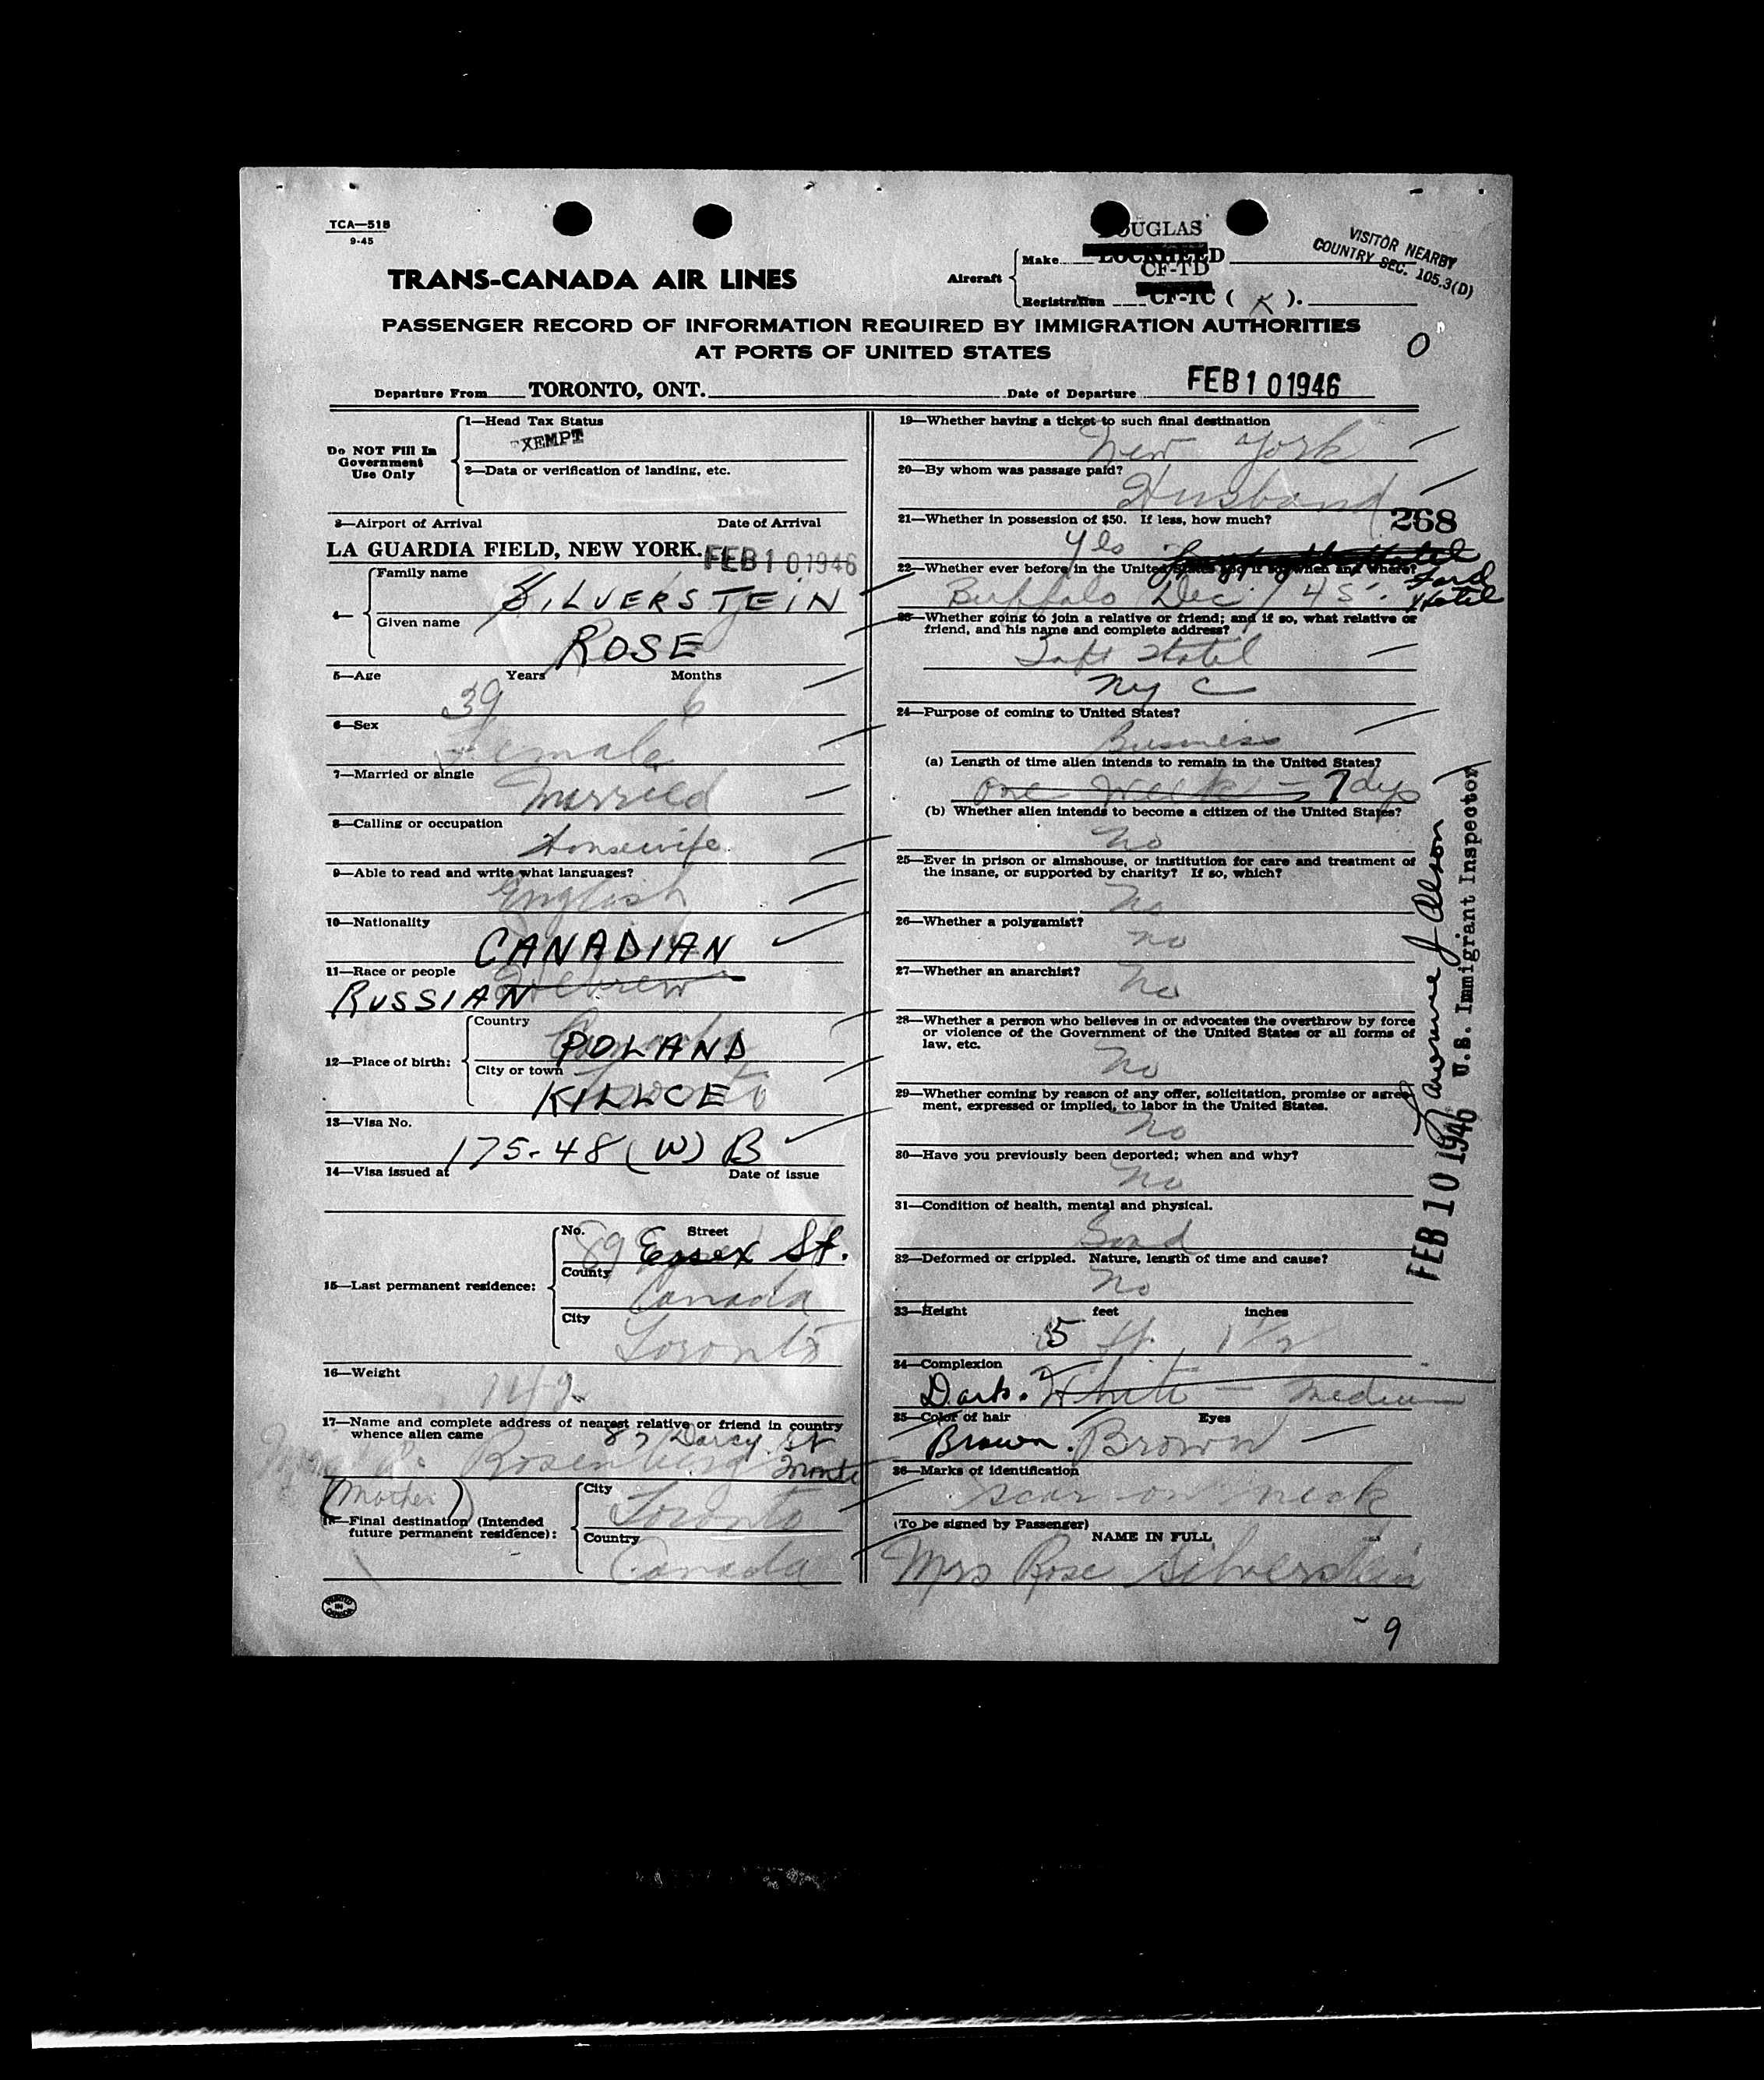 TCA—518
9-45
DOUGLAS
VISITOR NEARBY
COUNTRY SEC. 105.3(D)
TRANS-CANADA AIR LINES
Aircraft
Make LOCKHEED
CF-TD
Registration CF-TC ( K ).
PASSENGER RECORD OF INFORMATION REQUIRED BY IMMIGRATION AUTHORITIES
AT PORTS OF UNITED STATES
O
Departure From TORONTO, ONT. Date of Departure FEB 10 1946
Do NOT Fill In
Government
Use Only
1—Head Tax Status
EXEMPT
2—Data or verification of landing, etc.
3—Airport of Arrival Date of Arrival
LA GUARDIA FIELD, NEW YORK. FEB 10 1946
4—
Family name
SILVERSTEIN
Given name
ROSE
5—Age Years Months
39 6
6—Sex
Female
7—Married or single
Married
8—Calling or occupation
Housewife
9—Able to read and write what languages?
English
10—Nationality
CANADIAN
11—Race or people
Hebrew
RUSSIAN
12—Place of birth:
Country
Canada
POLAND
City or town
Toronto
KILLCE
13—Visa No.
175-48 (W) B
14—Visa issued at Date of issue
15—Last permanent residence:
No. Street
89 Essex St.
County
Canada
City
Toronto
16—Weight
142
17—Name and complete address of nearest relative or friend in country
whence alien came
87 Darcy St
Rosenberg
(Mother)
18—Final destination (Intended
future permanent residence):
City
Toronto
Country
Canada
PRINTED
IN
CANADA
19—Whether having a ticket to such final destination
New York
20—By whom was passage paid?
Husband
21—Whether in possession of $50. If less, how much?
268
Yes
22—Whether ever before in the United States and if so, when and where?
Buffalo Dec / 45. Ford
Hotel
23—Whether going to join a relative or friend; and if so, what relative or
friend, and his name and complete address?
Taft Hotel
NYC
24—Purpose of coming to United States?
Business
(a) Length of time alien intends to remain in the United States?
One Week - 7 dys
(b) Whether alien intends to become a citizen of the United States?
No
25—Ever in prison or almshouse, or institution for care and treatment of
the insane, or supported by charity? If so, which?
No
26—Whether a polygamist?
no
27—Whether an anarchist?
No
28—Whether a person who believes in or advocates the overthrow by force
or violence of the Government of the United States or all forms of
law, etc.
No
29—Whether coming by reason of any offer, solicitation, promise or agree-
ment, expressed or implied, to labor in the United States.
No
30—Have you previously been deported; when and why?
No
31—Condition of health, mental and physical.
Good
32—Deformed or crippled. Nature, length of time and cause?
No
33—Height feet inches
5 ft. 1 1/2
34—Complexion
Dark. White - Medium
35—Color of hair Eyes
Brown. Brown
36—Marks of identification
scar on neck
(To be signed by Passenger)
NAME IN FULL
Mrs Rose Silverstein
9
U.S. Immigrant Inspector
FEB 10 1946